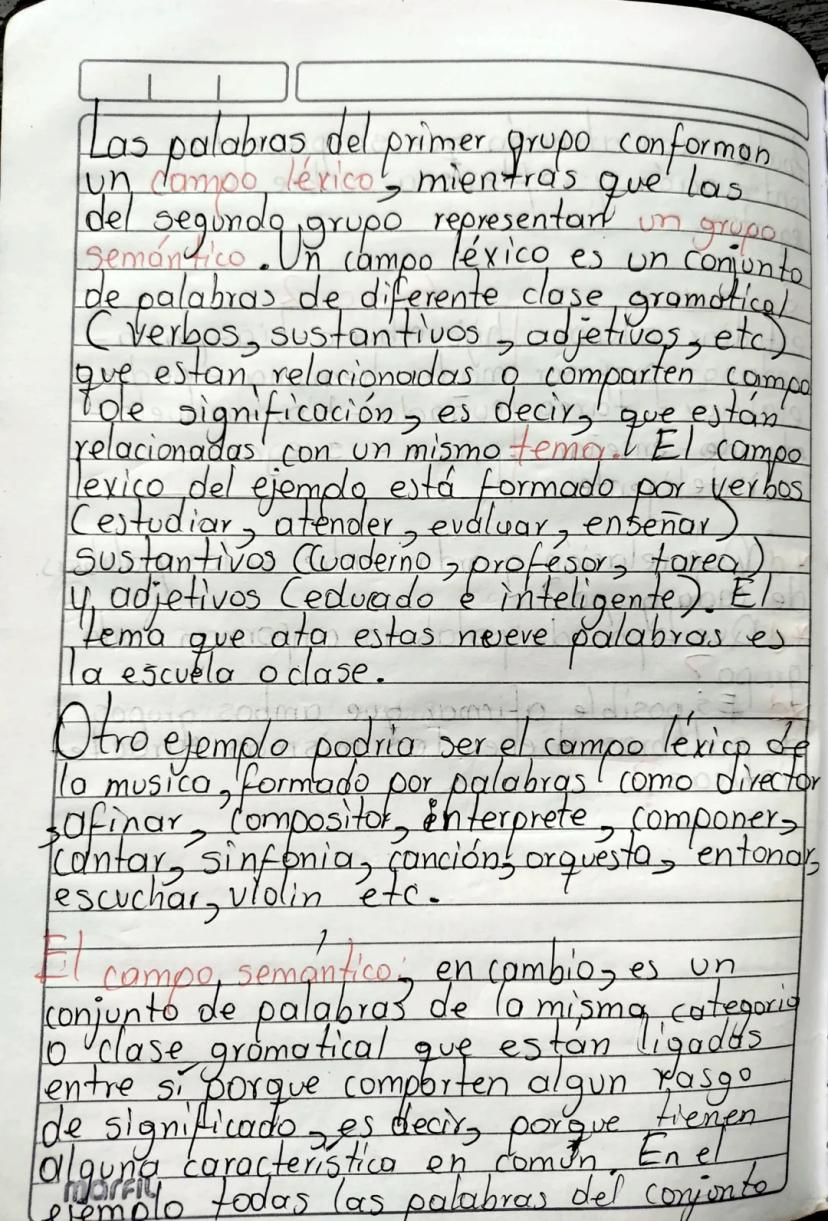 Las palabras del primer grupo conforman
un campo léxico, mientras que las
del segundo grupo representan un grupo
semántico. Un campo léxico es un conjunto
de palabras de diferente clase gramatical
(verbos, sustantivos, adjetivos, etc)
que estan relacionadas o comparten campo
de significación, es decir, que están
relacionadas con un mismo tema. El campo
lexico del ejemplo está formado por verbos
(estudiar, atender, evaluar, enseñar)
sustantivos (cuaderno, profesor, tarea)
y adjetivos (educado e inteligente). El
tema que ata estas nueve palabras es
la escuela o clase.
Otro ejemplo podria ser el campo léxico de
la musica, formado por palabras como director
, afinar, compositor, interprete, componer,
cantar, sinfonia, canción, orquesta, entonar,
escuchar, violin etc.
El campo semántico, en cambio, es un
conjunto de palabras de la misma categoria
o clase gramatical que están ligadas
entre sí porque comparten algun rasgo
de significado, es decir, porque tienen
alguna característica en común. En el
marfil
ejemplo todas las palabras del conjunto